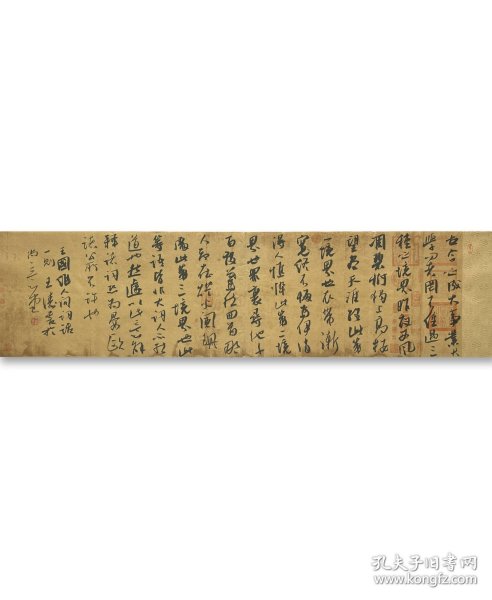 古今之成大事業大
學問者罔不經過三
種之境界昨夜西風
凋碧樹獨上高樓
望盡天涯路此第
一境界也衣帶漸
寬終不悔為伊消
得人憔悴此第二境
界也眾裏尋他千
百度驀然回首那
人卻在燈火闌珊
處此第三境界也此
等語皆非大詞人不能
道然遽以此意解
釋諸詞恐為晏歐
諸公所不許也
王國維人間詞話
一則王
孔夫子旧书网
www.kongfz.com